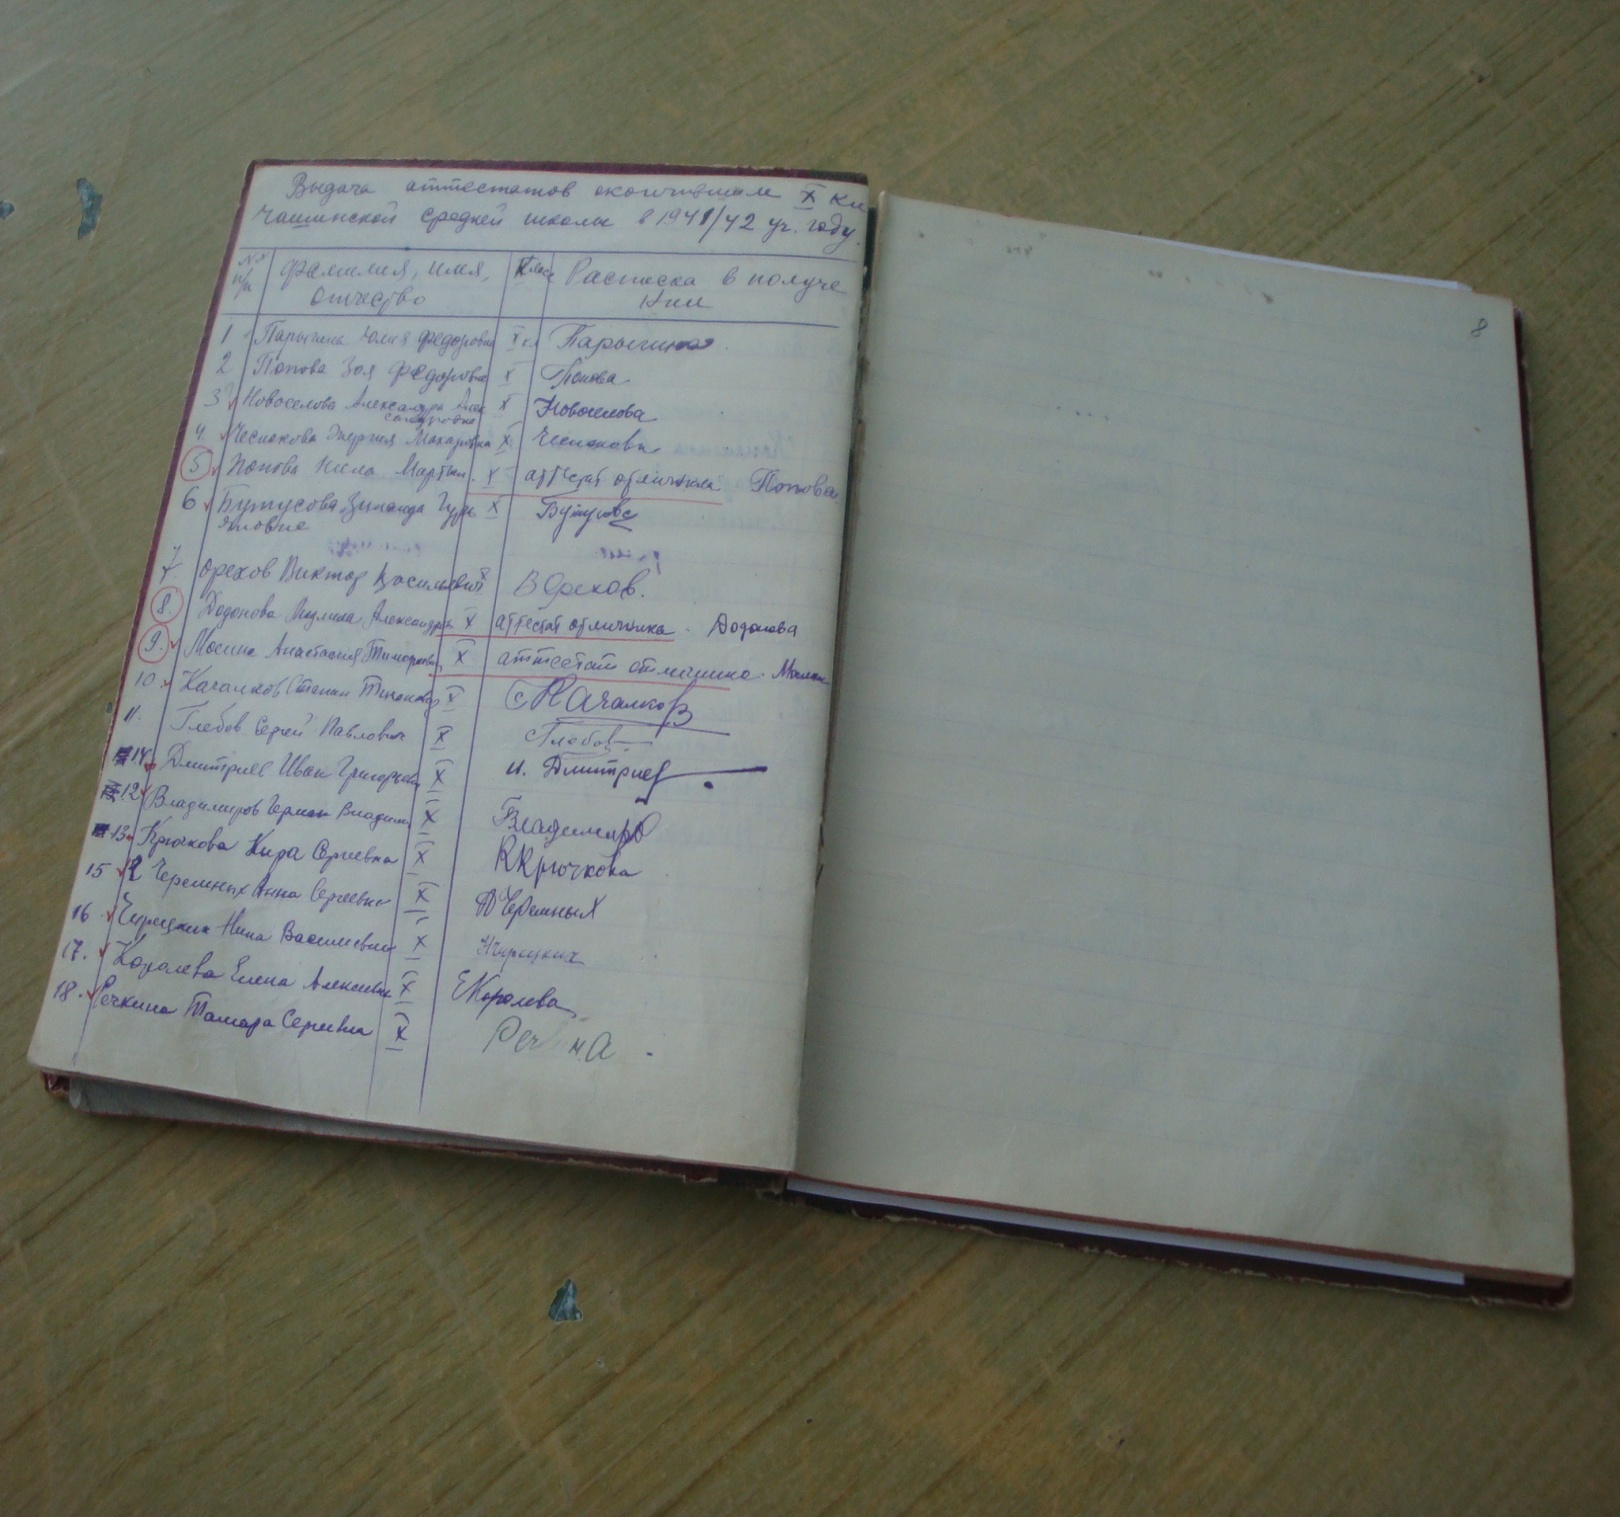 Выдача аттестатов окончившим X кл
Чашинской средней школы в 1941/42 уч. году.
№№ п/п фамилия, имя, отчество Класс Расписка в получении
1 Парыгина Юлия Федоровна X кл Парыгина
2 Попова Зоя Федоровна X Попова
3 Новоселова Александра Александровна X Новоселова
4. Чеснокова Энергия Макаровна X Чеснокова
5 Попова Нила Мартын. X аттестат отличника Попова
6 Бутусова Зинаида X Бутусова
7. Орехов Виктор Васильевич X В Орехов.
8. Додонова Александр X аттестат отличника. Додонова
9. Мосина Анастасия X аттестат отличника.
10. Качалков Степан X С Качалков
11. Глебов Сергей Павлович X Глебов
14 Дмитриев Иван Григорьевич X И. Дмитриев
12 Владимиров Герман Владим X Владимиро
13 Крючкова Кира Сергеевна X К Крючкова
15 Черемных Анна Сергеевна X А Черемных
16 Нина Васильевна X
17. Королева Елена Алексеевна X Е Королева
18. Речкина Тамара Сергеевна X Реч на
8